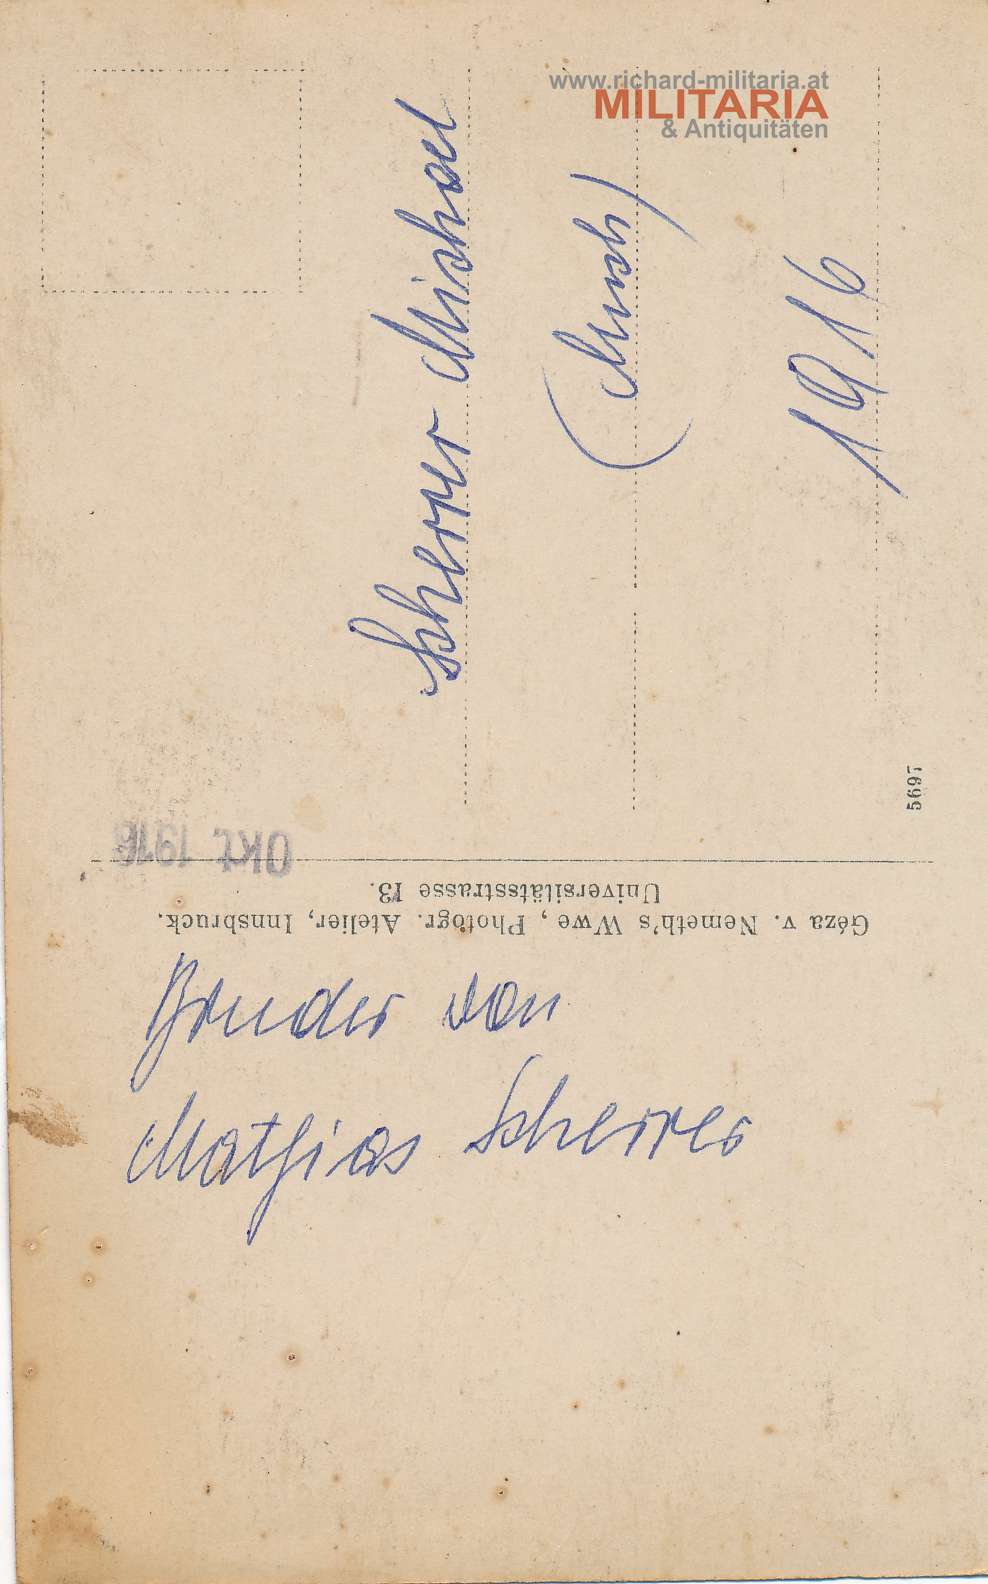 www.richard-militaria.at
MILITARIA
& Antiquitäten
Scherrer Michael
(Musch)
1916
5697
Okt. 1916
Géza v. Nemeth's Wwe, Photogr. Atelier, Innsbruck.
Universitätsstrasse 13.
Bruder von
Mathias Scherrer